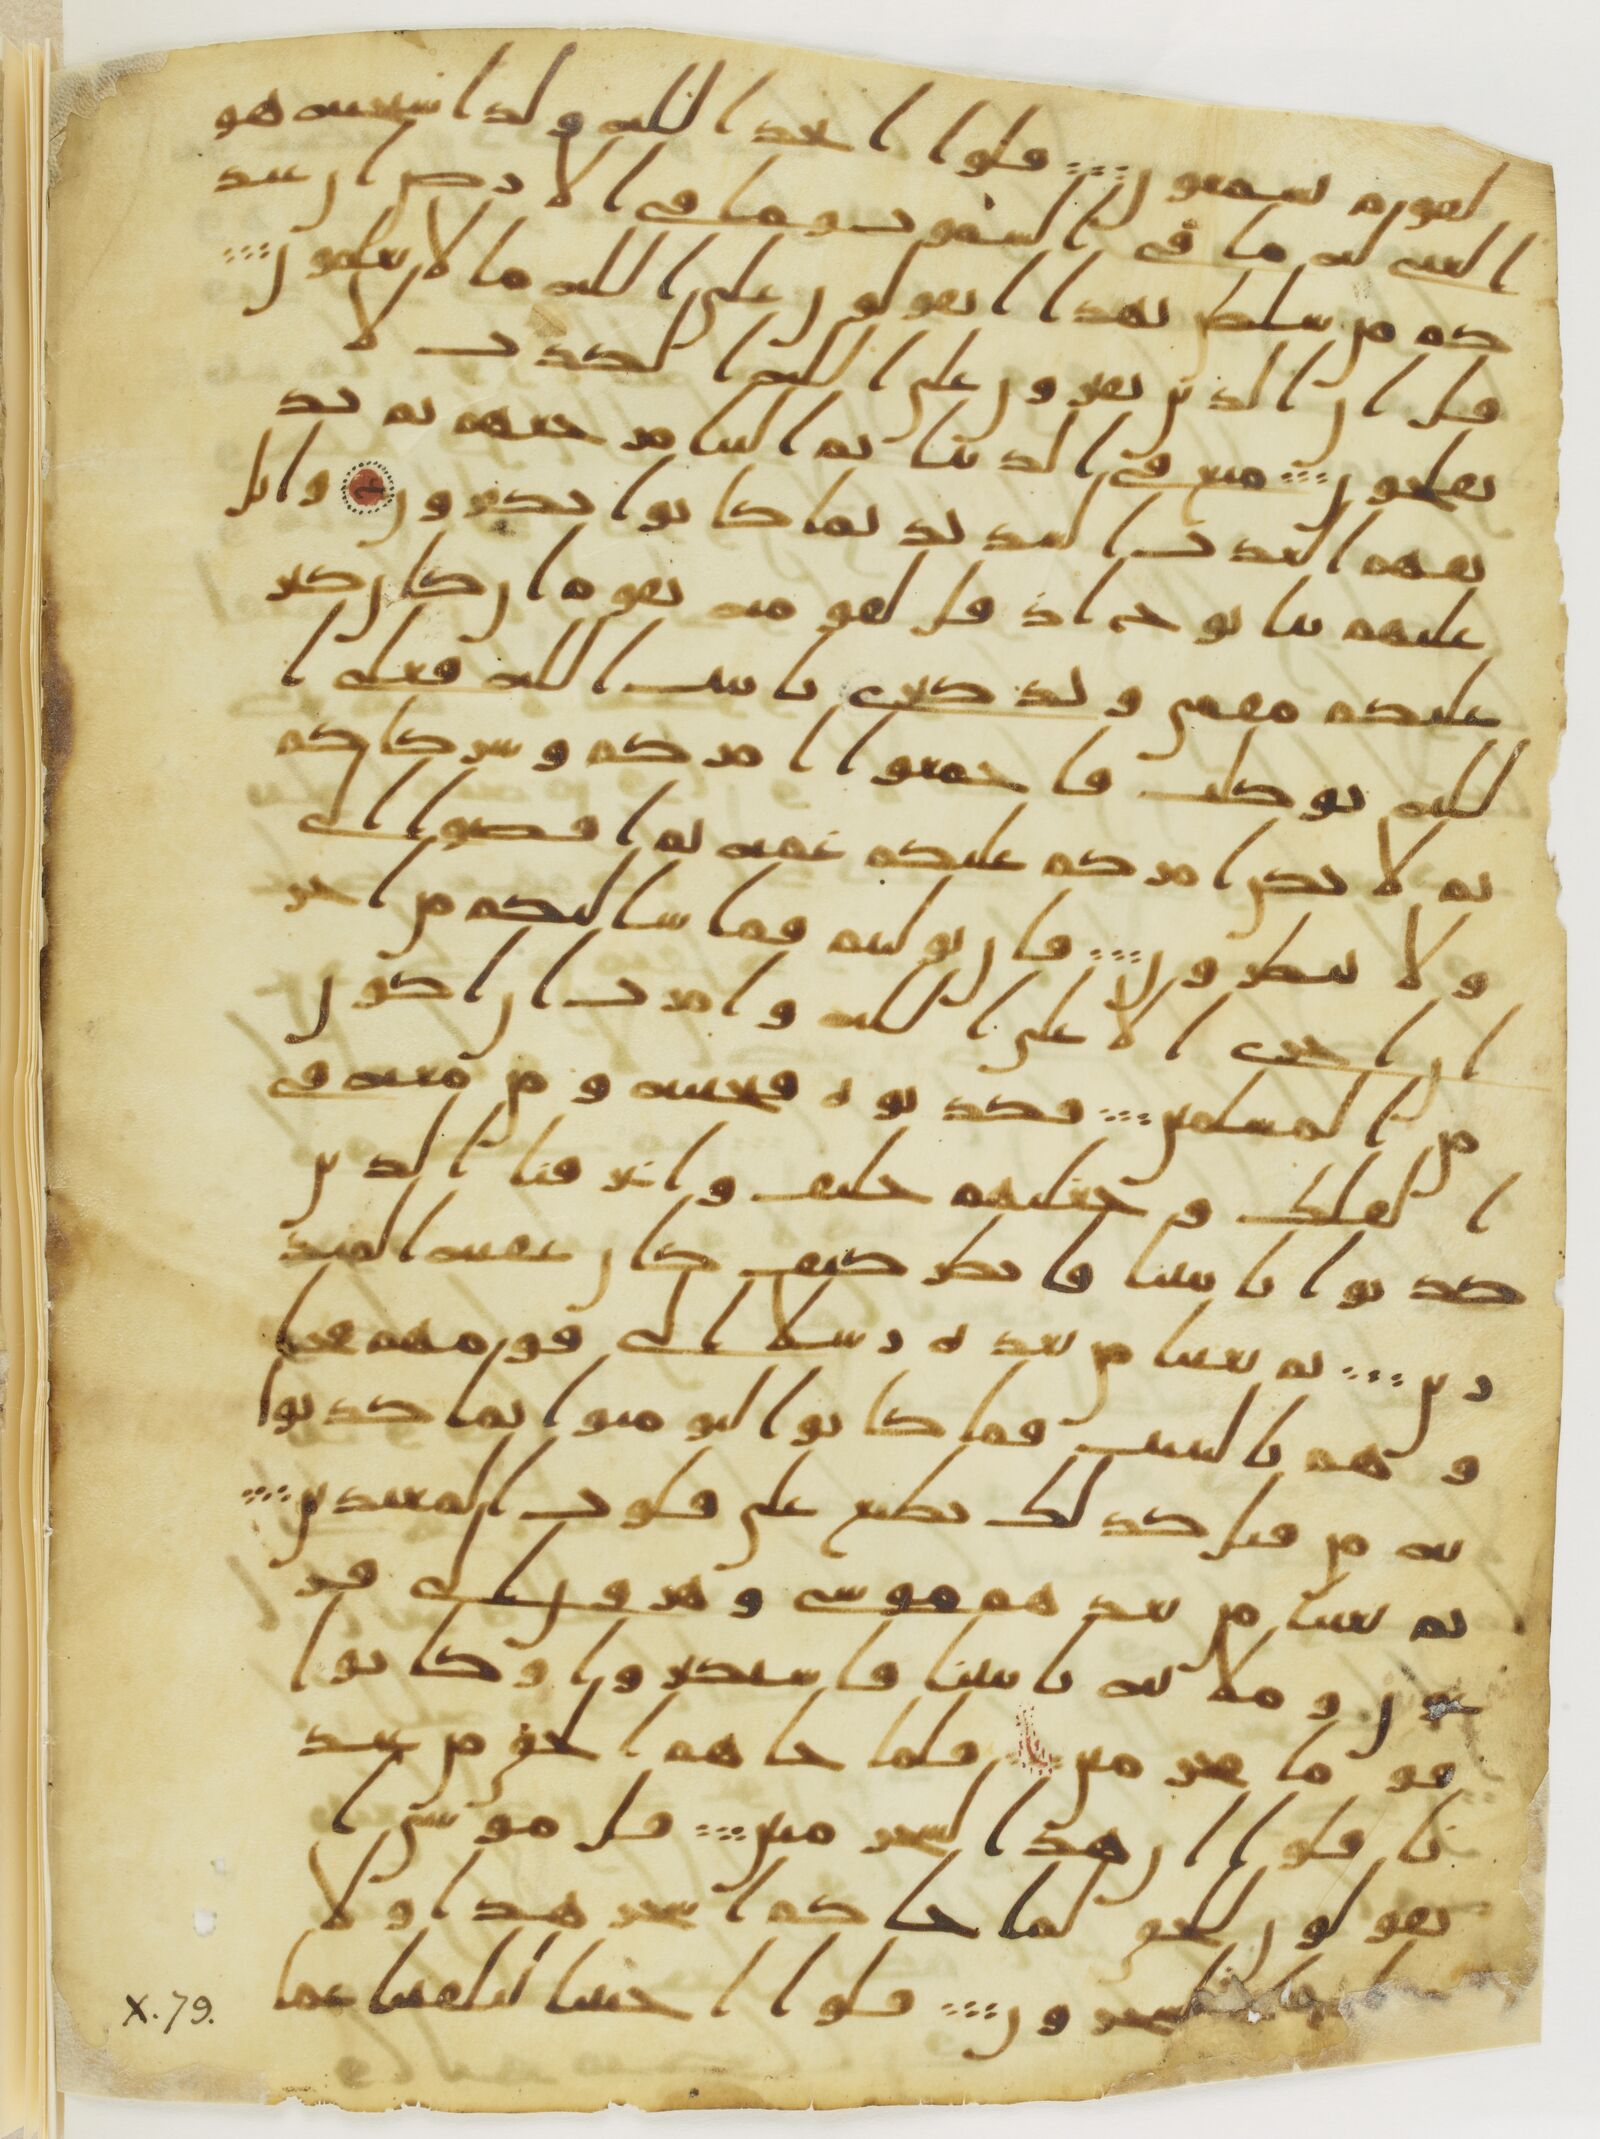 لقوم يسمعون ؞ قلوا اتخذ الله ولدا سبحنه هو
الغني له ما في السموت وما في الارض ان عند
كم من سلطن بهذا اتقولون على الله ما لا تعلمون ؞
قل ان الذين يفترون على الله الكذب لا
يفلحون ؞ متع في الدنيا ثم الينا مرجعهم ثم نذ
يقهم العذب الشديد بما كانوا يكفرون واتل
عليهم نبا نوح اذ قل لقومه يقوم ان كان كبر
عليكم مقمي وتذكيري بايت الله فعلى ا
لله توكلت فاجمعوا امركم وشركاكم
ثم لا يكن امركم عليكم غمه ثم اقضوا الي
ولا تنظرون ؞ فان توليتم فما سالتكم من اجر
ان اجري الا على الله وامرت ان اكون
من المسلمين ؞ فكذبوه فنجينه ومن معه في
الفلك وجعلنهم خليف واغرقنا الذين
كذبوا باييتنا فانظر كيف كان عقبه المنذ
رين ؞ ثم بعثنا من بعده رسلا الى قومهم فجا
وهم بالبينت فما كانوا ليومنوا بما كذبوا
به من قبل كذلك نطبع على قلوب المعتدين ؞
ثم بعثنا من بعدهم موسى وهرون الى فر
عون وملايه باييتنا فاستكبروا وكانوا
قوما مجرمين ؞ فلما جاهم الحق من عند
نا قلوا ان هذا لسحر مبين ؞ قل موسى ا
تقولون للحق لما جاكم اسحر هذا ولا
السحرون ؞ قلوا اجيتنا لتلفتنا عما
X.79.